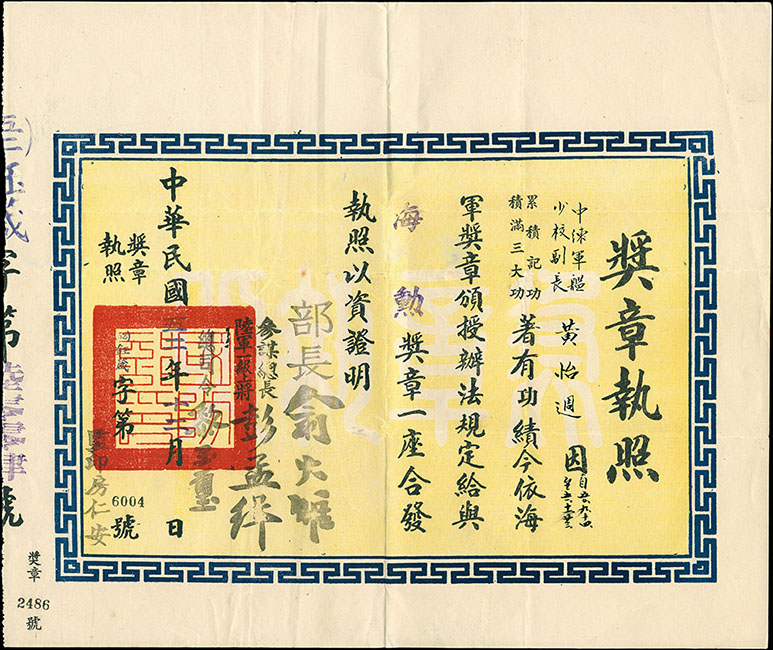 獎章執照
中溁軍艦
少校副長
黃怡週
因
累積記功
積滿三大功
著有功績今依海
軍獎章頒授辦法規定給與
海勳獎章一座合發
執照以資證明
部長俞大維
參謀總長
陸軍一級上將彭孟緝
總司令
中華民國五十二年十二月日
獎章
執照
字第6004號
監印房仁安
字第
號
獎章
2486
號